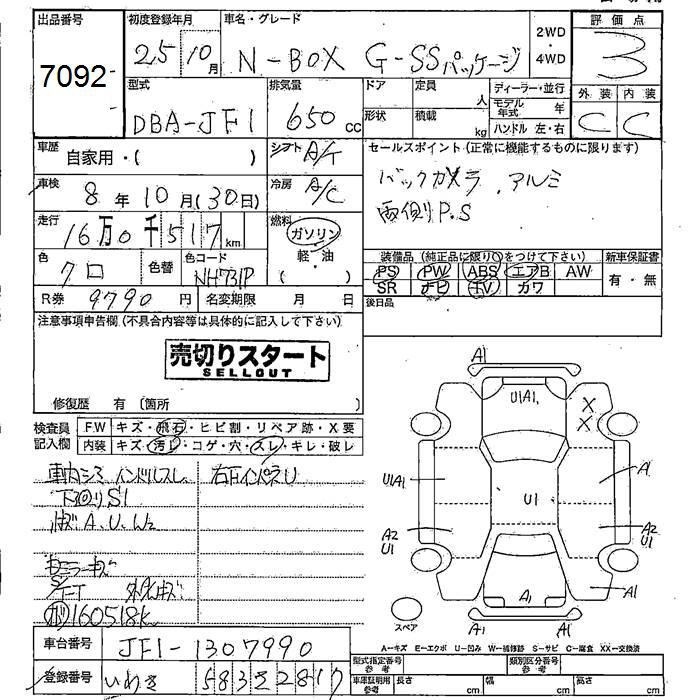 出品番号
7092
初度登録年月
25 10月
車名・グレード
N-BOX G-SSパッケージ
2WD
・
4WD
評価点
3
外装 内装
C C
型式
DBA-JF1
排気量
650 cc
ドア
形状
定員 人
積載 kg
ディーラー・並行
モデル年式 年
ハンドル 左・右
車歴 自家用・( )
シフト A/T
車検 8年10月(30日)
冷房 A/C
走行 16万0千517km
燃料 ガソリン
軽・油
( )
色 クロ
色替
色コード NH731P
R券 9790円
名変期限 月 日
セールスポイント(正常に機能するものに限ります)
バックカメラ、アルミ
両側P.S
装備品(純正品に限り○をつけて下さい)
PS PW ABS エアB AW
SR ナビ TV カワ
新車保証書
有・無
後日品
注意事項申告欄(不具合内容等は具体的に記入して下さい)
売切りスタート
SELLOUT
修復歴 有(箇所 )
検査員記入欄
F.W キズ・飛石・ヒビ割・リペア跡・X要
内装 キズ・汚レ・コゲ・穴・スレ・キレ・破レ
車内シミ ハンドルスレ
右FインパネU
下回りS1
A、U、W2
ミラーキズ
160518k
車台番号 JF1-1307990
登録番号 いわき 583 2817
A1
U1A1,
X
X
U1A1
A1
U1
A2
U1
A2
U1
A1
A1
A1
A1
スペア
A—キズ E—エクボ U—凹み W—補修跡 S—サビ C—腐食 XX—交換済
型式指定番号 参考
類別区分番号 参考
車庫証明用 参考
長さ cm
幅 cm
高さ cm